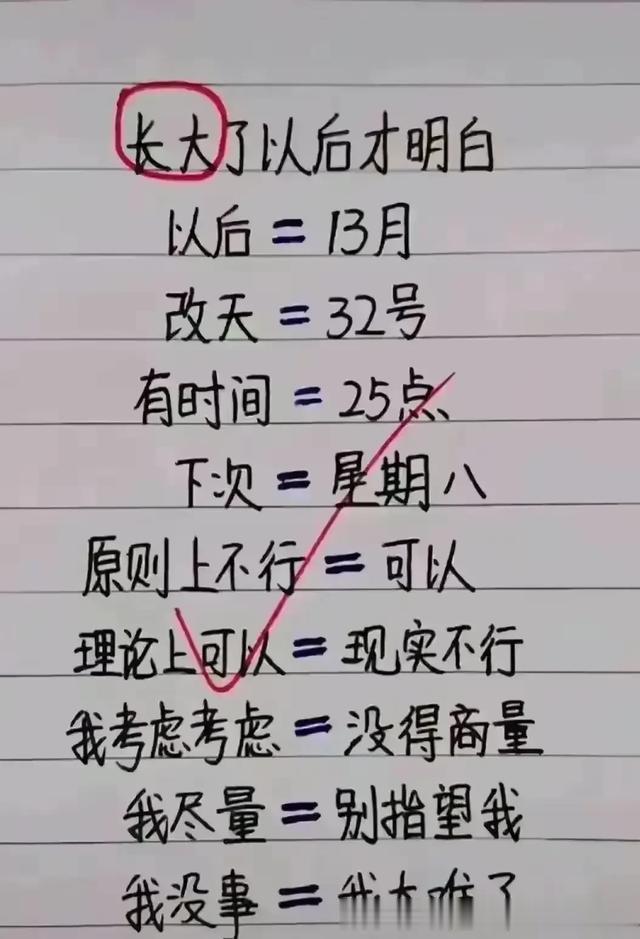 长大了以后才明白
以后=13月
改天=32号
有时间=25点
下次=星期八
原则上不行=可以
理论上可以=现实不行
我考虑考虑=没得商量
我尽量=别指望我
我没事=我太难了